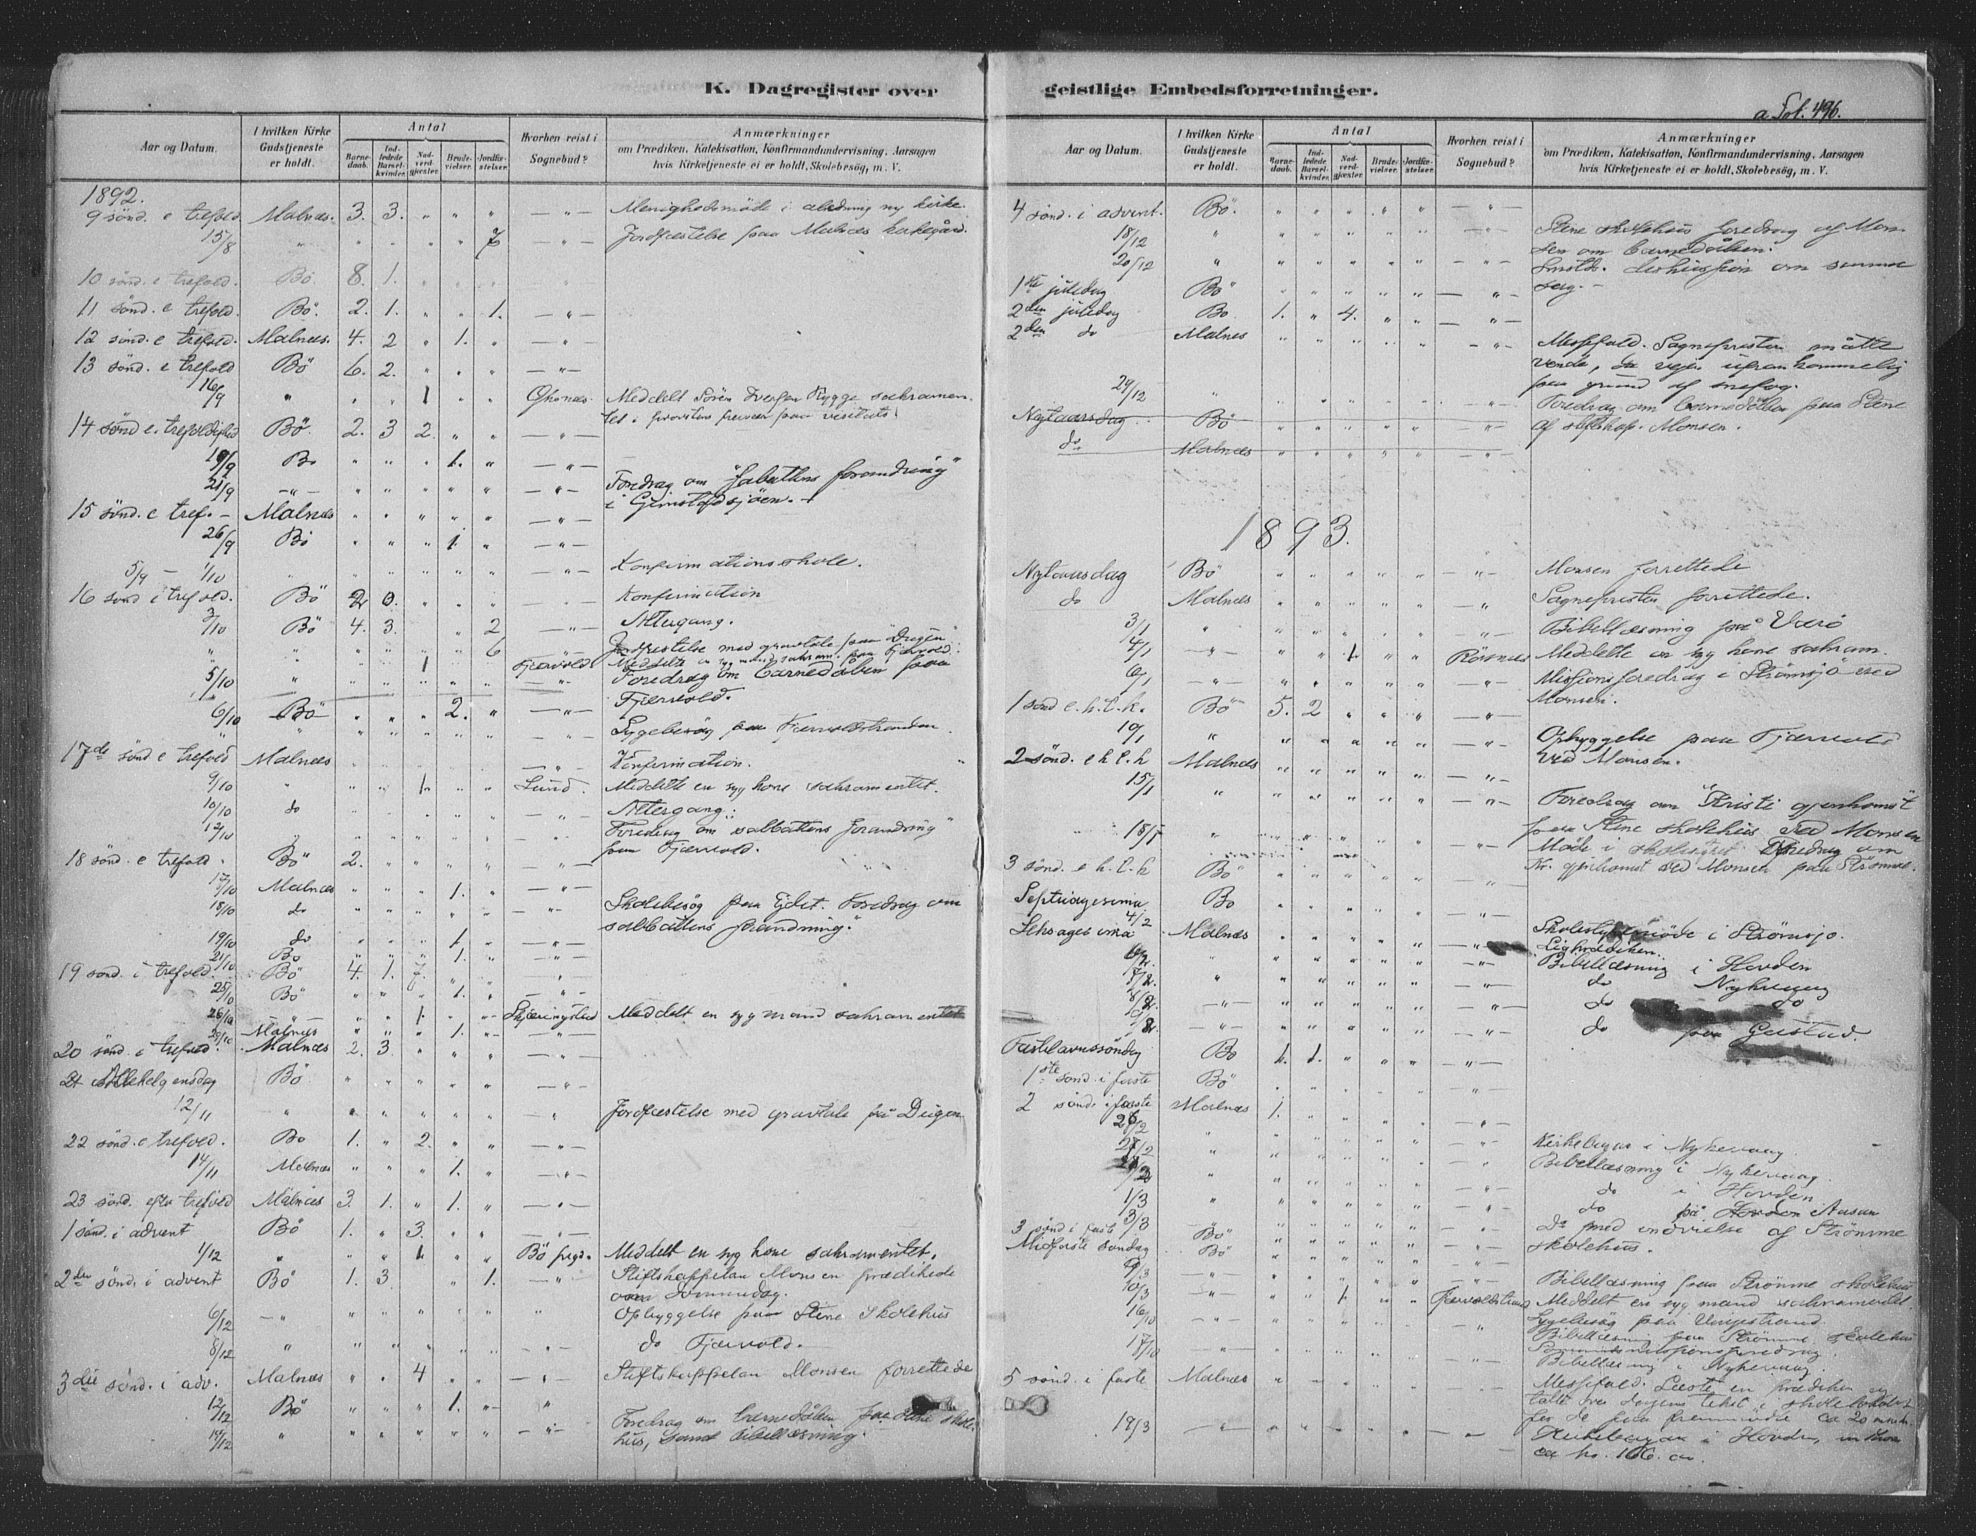 K. Dagregister over geistlige Embedsforretninger.
a Fol. 496.
Aar og Datum.
I hvilken Kirke Gudstjeneste er holdt.
Antal
Barnedaab.
Indledede Barselkvinder.
Nadverdgjæster.
Brudevielser.
Jordfæstelser.
Hvorhen reist i Sognebud?
Anmærkninger
om Prædiken, Katekisation, Konfirmandundervisning, Aarsagen
hvis Kirketjeneste ei er holdt, Skolebesög, m. V.
1892.
9 sönd. e trefold. Malnæs. 3. 3. " " " — " — Menighedsmöde i anledning ny kirke.
15/8 " " " " " 7 — " — Jordfæstelse paa Malnæs kirkegård.
10 sönd. e trefold. Bö. 8. 1. " " "
11 sönd. e trefold. Bö. 2. 1. " " 1. — " —
12 sönd. e trefold. Malnæs. 4. 2 " 1. " — " —
13 sönd. e trefold Bö 6. 2. " " " — " —
16/9 " " " 1 " " Meddelt Sören Rygge sakramen-
tet i provstens paa visitats.
14 sönd. e. trefoldighed Bö. 2. 3 2. " " — " —
19/9 Bö " " " 1. " — " —
21/9 — " — " " " " " — " — Foredrag om "Sabattens forandring"
i Gimstadsjöen. —
15 sönd. e tref. — Malnæs " " " " " — " —
26/9 Bö " " " 1. " — " —
5/9 — 1/10 " " " " " " Konfirmationsskole.
16 sönd i trefold. Bö 2 0. " " " Konfirmation
3/10 Bö 4. 3. " 2 — " — Altergang.
" " " " " 6 Jordfæstelse med gravtale paa "Dugen"
" " " 1. " Fjærvold Meddelte en syg mand sakram. paa Fjærvold.
5/10 " " " " " " — " — Foredrag om barnedåben paa
Fjærvold.
6/10 Bö " " " 2. " — " —
" " " " " " " Sygebesög paa Fjærvoldstranden.
17de sönd e trefold Malnæs — " — Konfirmation.
9/10 " " " 1. " " Lund. Meddelte en syg kone sakramentet.
10/10 do " " " " " Altergang.
12/10 " " " " " " Foredrag om sabbattens forandring"
paa Fjærvold.
18 sönd. e trefold. Bö 2. " " " " — " —
17/10 Malnæs " " " 1. " — " —
18/10 do " " " " " Skolebesög paa Eidet. Foredrag om
sabbattens forandring."
19/10 do " " " 1. " — " —
21/10 Bö " " " 1. " — " —
19 sönd. i trefold. Bö 4. 1. 7. " " — " —
25/10 Bö " " " 1. " — " —
26/10 " " " 1. " " Skjæringstad Meddelt en syg mand sakramentet
29/10 Malnæs " " " 1. " — " —
20 sönd. i trefold. Malnæs 2. 3 " " " — " —
21 Allehelgensdag Bö " " " " " — " —
12/11 " " " " " " Jordfæstelse med gravtale på Dugen
22 sönd. e trefold. Bö 1. " 2. " " — " —
14/11 Malnæs " " " 1. " — " —
23 sönd. efter trefold Malnæs 3. 1. " 1. " — " —
1 sönd. i advent Bö 1. " 3. " " — " —
1/12 " " " 1. " " Bö prgd. Meddelt en syg kone sakramentet.
2den sönd. i advent Bö 1. 3. " 1. — " — Stiftskappelan Monsen prædikede
om dommedag.
6/12 — " — " " " " " " Opbyggelse paa Stene Skolehus
8/12 " " " " " " — " — do Fjærvold.
3die sönd. i adv. Malnæs " " 4 " " — " — Stiftskappelan Monsen forrettede
12/12 Bö " " " 1. " "
14/12 " " " " " " — " — Foredrag om barnedåben paa Stene skole-
hus, samt bibellæsning.
Aar og Datum.
I hvilken Kirke Gudstjeneste er holdt.
Antal
Barnedaab.
Indledede Barselkvinder.
Nadverdgjæster.
Brudevielser.
Jordfæstelser.
Hvorhen reist i Sognebud?
Anmærkninger
om Prædiken, Katekisation, Konfirmandundervisning, Aarsagen
hvis Kirketjeneste ei er holdt, Skolebesög, m. V.
4 sönd. i advent. Bö. " " " " " — " —
18/12 " " " " " " — " — Stene skolehus foredrag af Mon-
sen om barnedåben.
20/12 " " " " " " — " — Smstds. diskussion om samme
sag. —
1ste juledag Bö " " " " " — " —
2den juledag Bö 1. " 4. " " — " —
2den do Malnæs " " " " " — " — Messefald. Sognepresten måtte
vende, da vejen ufremkommelig
paa grund af snefog.
29/12 " " " " " " — " — Foredrag om barnedåben paa Stene
af stiftskap. Monsen.
Nytaarsdag Bö " " " " " — " —
do Malnæs " " " " " — " —
1893.
Nytaarsdag Bö " " " " " — " — Monsen forrettede
do Malnæs " " " " " — " — Sognepresten forrettede.
3/1 " " " " " " — " — Bibellæsning på Værö
4/1 — " — " " 1. " " Röisnæs Meddelte en syg kone sakram.
6/1 — " — " " " " " — " — Missionsforedrag i Strömsjö ved
Monsen.
1 sönd e. h. t. k. Bö 5. 2 " " " — " —
19/1 " " " " " " — " — Opbyggelse paa Fjærvold
ved Monsen.
2 sönd. e h. t. k Malnæs " " " " " — " —
15/1 " " " " " " — " — Foredrag om "Kristi gjenkomst"
paa Stene skolehus ved Monsen
18/1 " " " " " " — " — Möde i skolestyret. Foredrag om
Kr. gjenkomst ved Monsen paa Strömme.
3 sönd. e h. t. k Bö " " " " " — " —
Septuagesima Bö " " " " "
4/2 Skolestyremöde i Strömsjö.
Seksagesima Malnæs " " " " " — " — Ligprædiken.
Bibellæsning i Hovden
7/2 " " " " " " — " — do Nykvaag
8/2 — " — " " " " " — " — do do
9/2 — " — " " " " " — " — do paa Gustad.
Fastelavnssöndag Bö 1. 1. " " " — " —
1ste sönd i faste Bö " " " " " — " —
2 sönd i faste Malnæs 1. " " " " — " —
26/2 " " " " " " — " — Kirkebygn i Nykvaag
27/2 " " " " " " — " — Bibellæsning i Nykvaag
1/3 " " " " " " — " — do i Hovden
3/3 " " " " " " — " — do på Hovden Aasan
3 sönd i faste Bö " " " " " Do med indvielse af Strömme
skolehus.
Midfaste söndag Bö " " " " " — " —
9/3 — " — " " " " " — " — Bibellæsning paa Strömme skolehus
10/3 — " — " " 1. " " Fjærvoldstrand Meddelt en syg mand sakramentet.
16/10 — " — " " " " " — " — Sygebesög paa Vingestrand.
Bibellæsning paa Strömme skolehus
17/10 — " — " " " " " — " — missionsforedrag.
Bibellæsning i Nykvaag.
5 sönd. i faste Malnæs " " " " " — " — Messefald. Læste en prædiken og
talte over dagens tekst i skolelokalet
for de faa fremmödte ca 20 mennesker
18/3 — " — " " " " " — " — Kirkebygn i Hovden,
ca kr. 166.